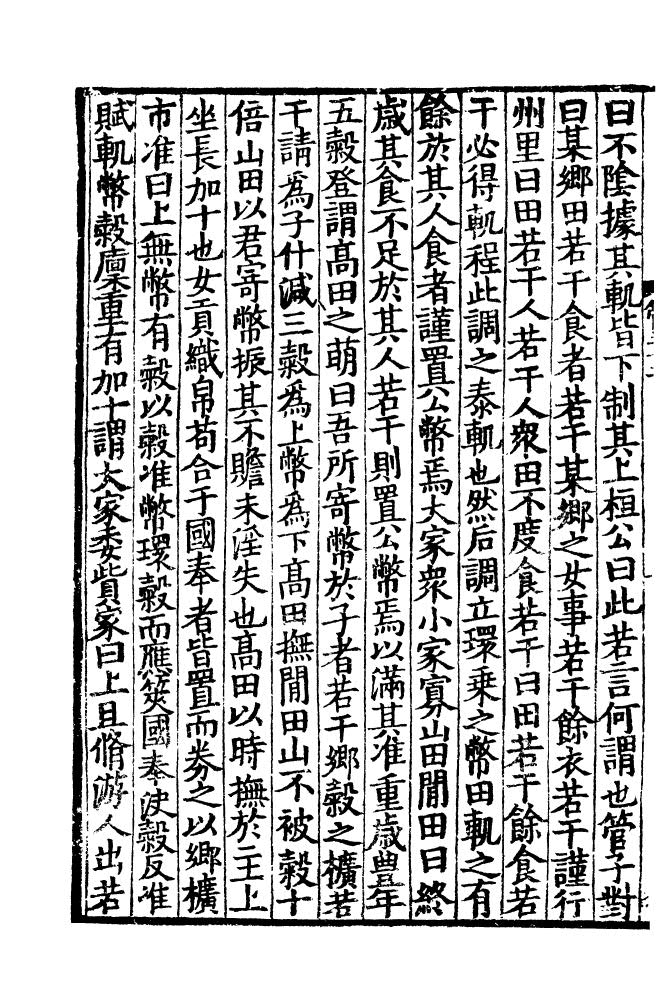 曰不陰據其軌皆下制其上桓公曰此若言何謂也管子對
曰某鄉田若干食者若干某鄉之女事若干餘衣若干謹行
州里曰田若干人若干人衆田不度食若干曰田若干餘食若
干必得軌程此調之泰軌也然后調立環乗之幣田軌之有
餘於其人食者謹置公幣焉大家衆小家寡山田閒田曰終
歲其食不足於其人若干則置公幣焉以滿其准重歲豊年
五穀登謂髙田之萌曰吾所寄幣於子者若干鄉穀之櫎若
干請爲子什減三穀爲上幣爲下髙田撫閒田山不被穀十
倍山田以君寄幣振其不贍未淫失也髙田以時撫於王上
坐長加十也女貢織帛苟合于國奉者皆置而劵之以鄉櫎
市准曰上無幣有穀以穀准幣環穀而應筴國奉决穀反准
賦軌幣穀廩重有加十謂大家委貲家曰上且脩游人出若